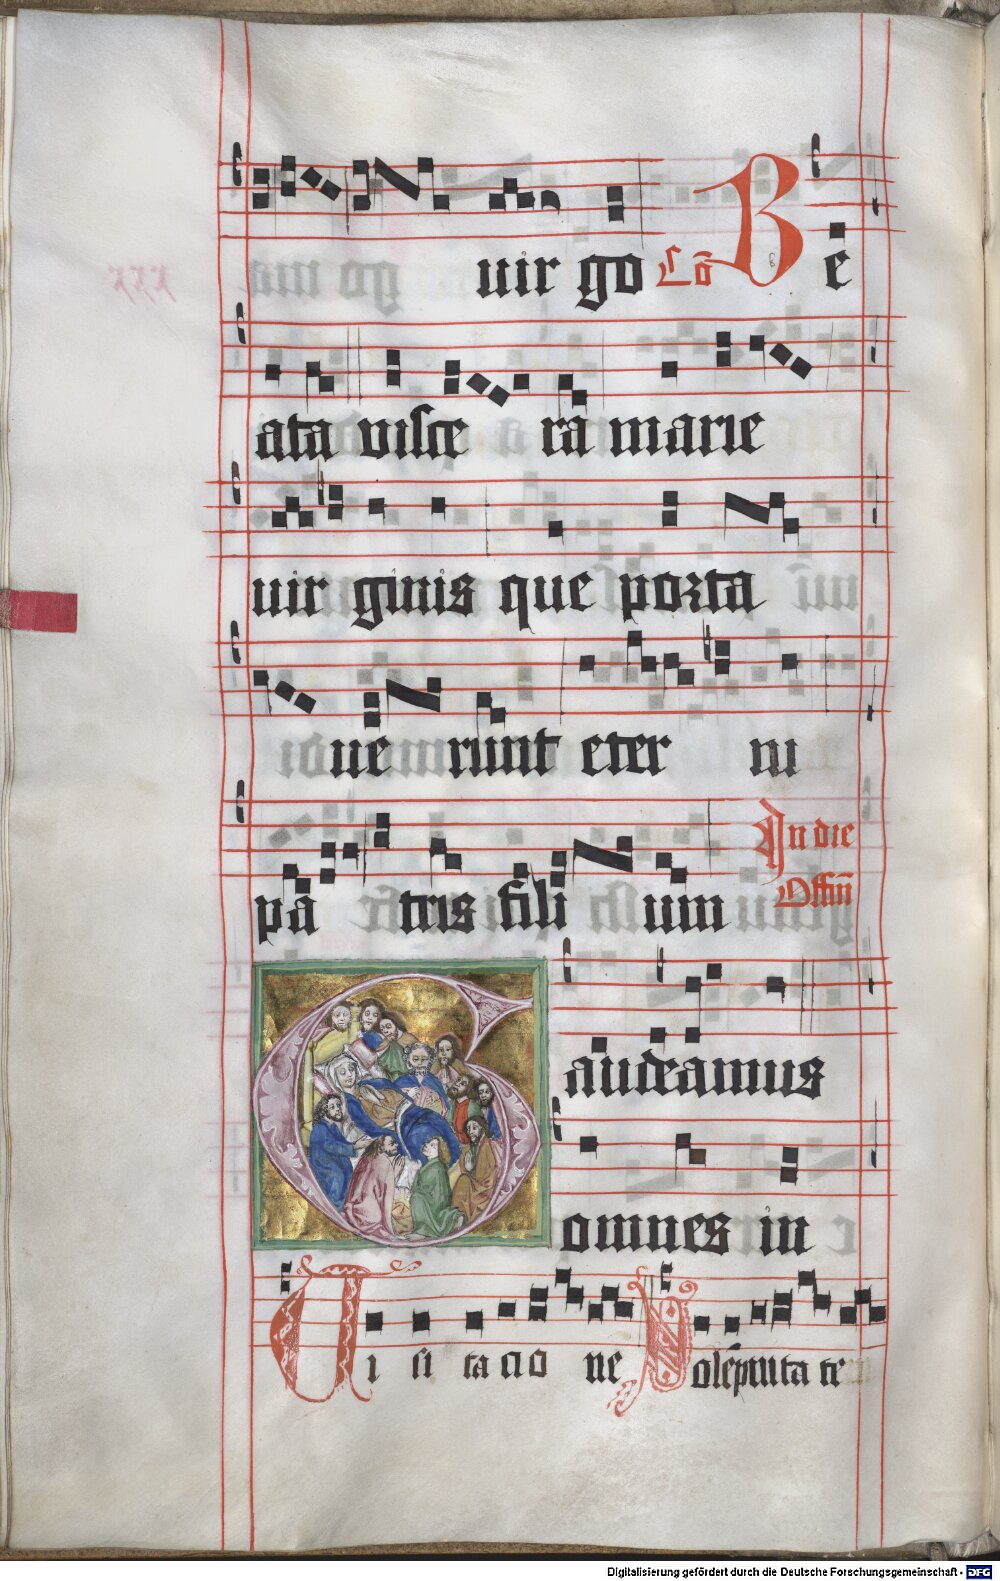 uir go Cō Be
ata viſce ra marie
uir ginis que porta
ue runt eter ni
pa tris fili um In die
Offm̄
Gaudeamus
omnes in
Ui ſi ta cio ne Solēpnita te
Digitalisierung gefördert durch die Deutsche Forschungsgemeinschaft - DFG